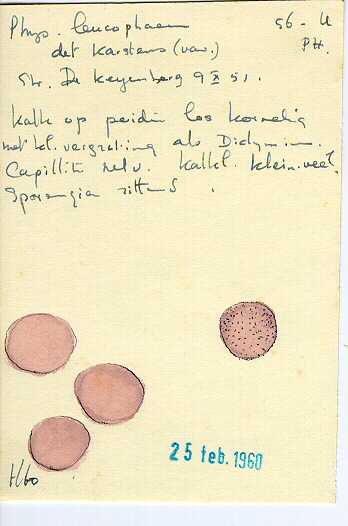 Phys. leucophaeum 56-U
det Karstens (var.) PH.
Str. De Keyenberg 9 X 51.
Kalk op peridin los korrelig
met kl. vergroting als Didymium.
Capilliti kalkk. klein. veel.
Sporangia zittend
25 feb. 1960